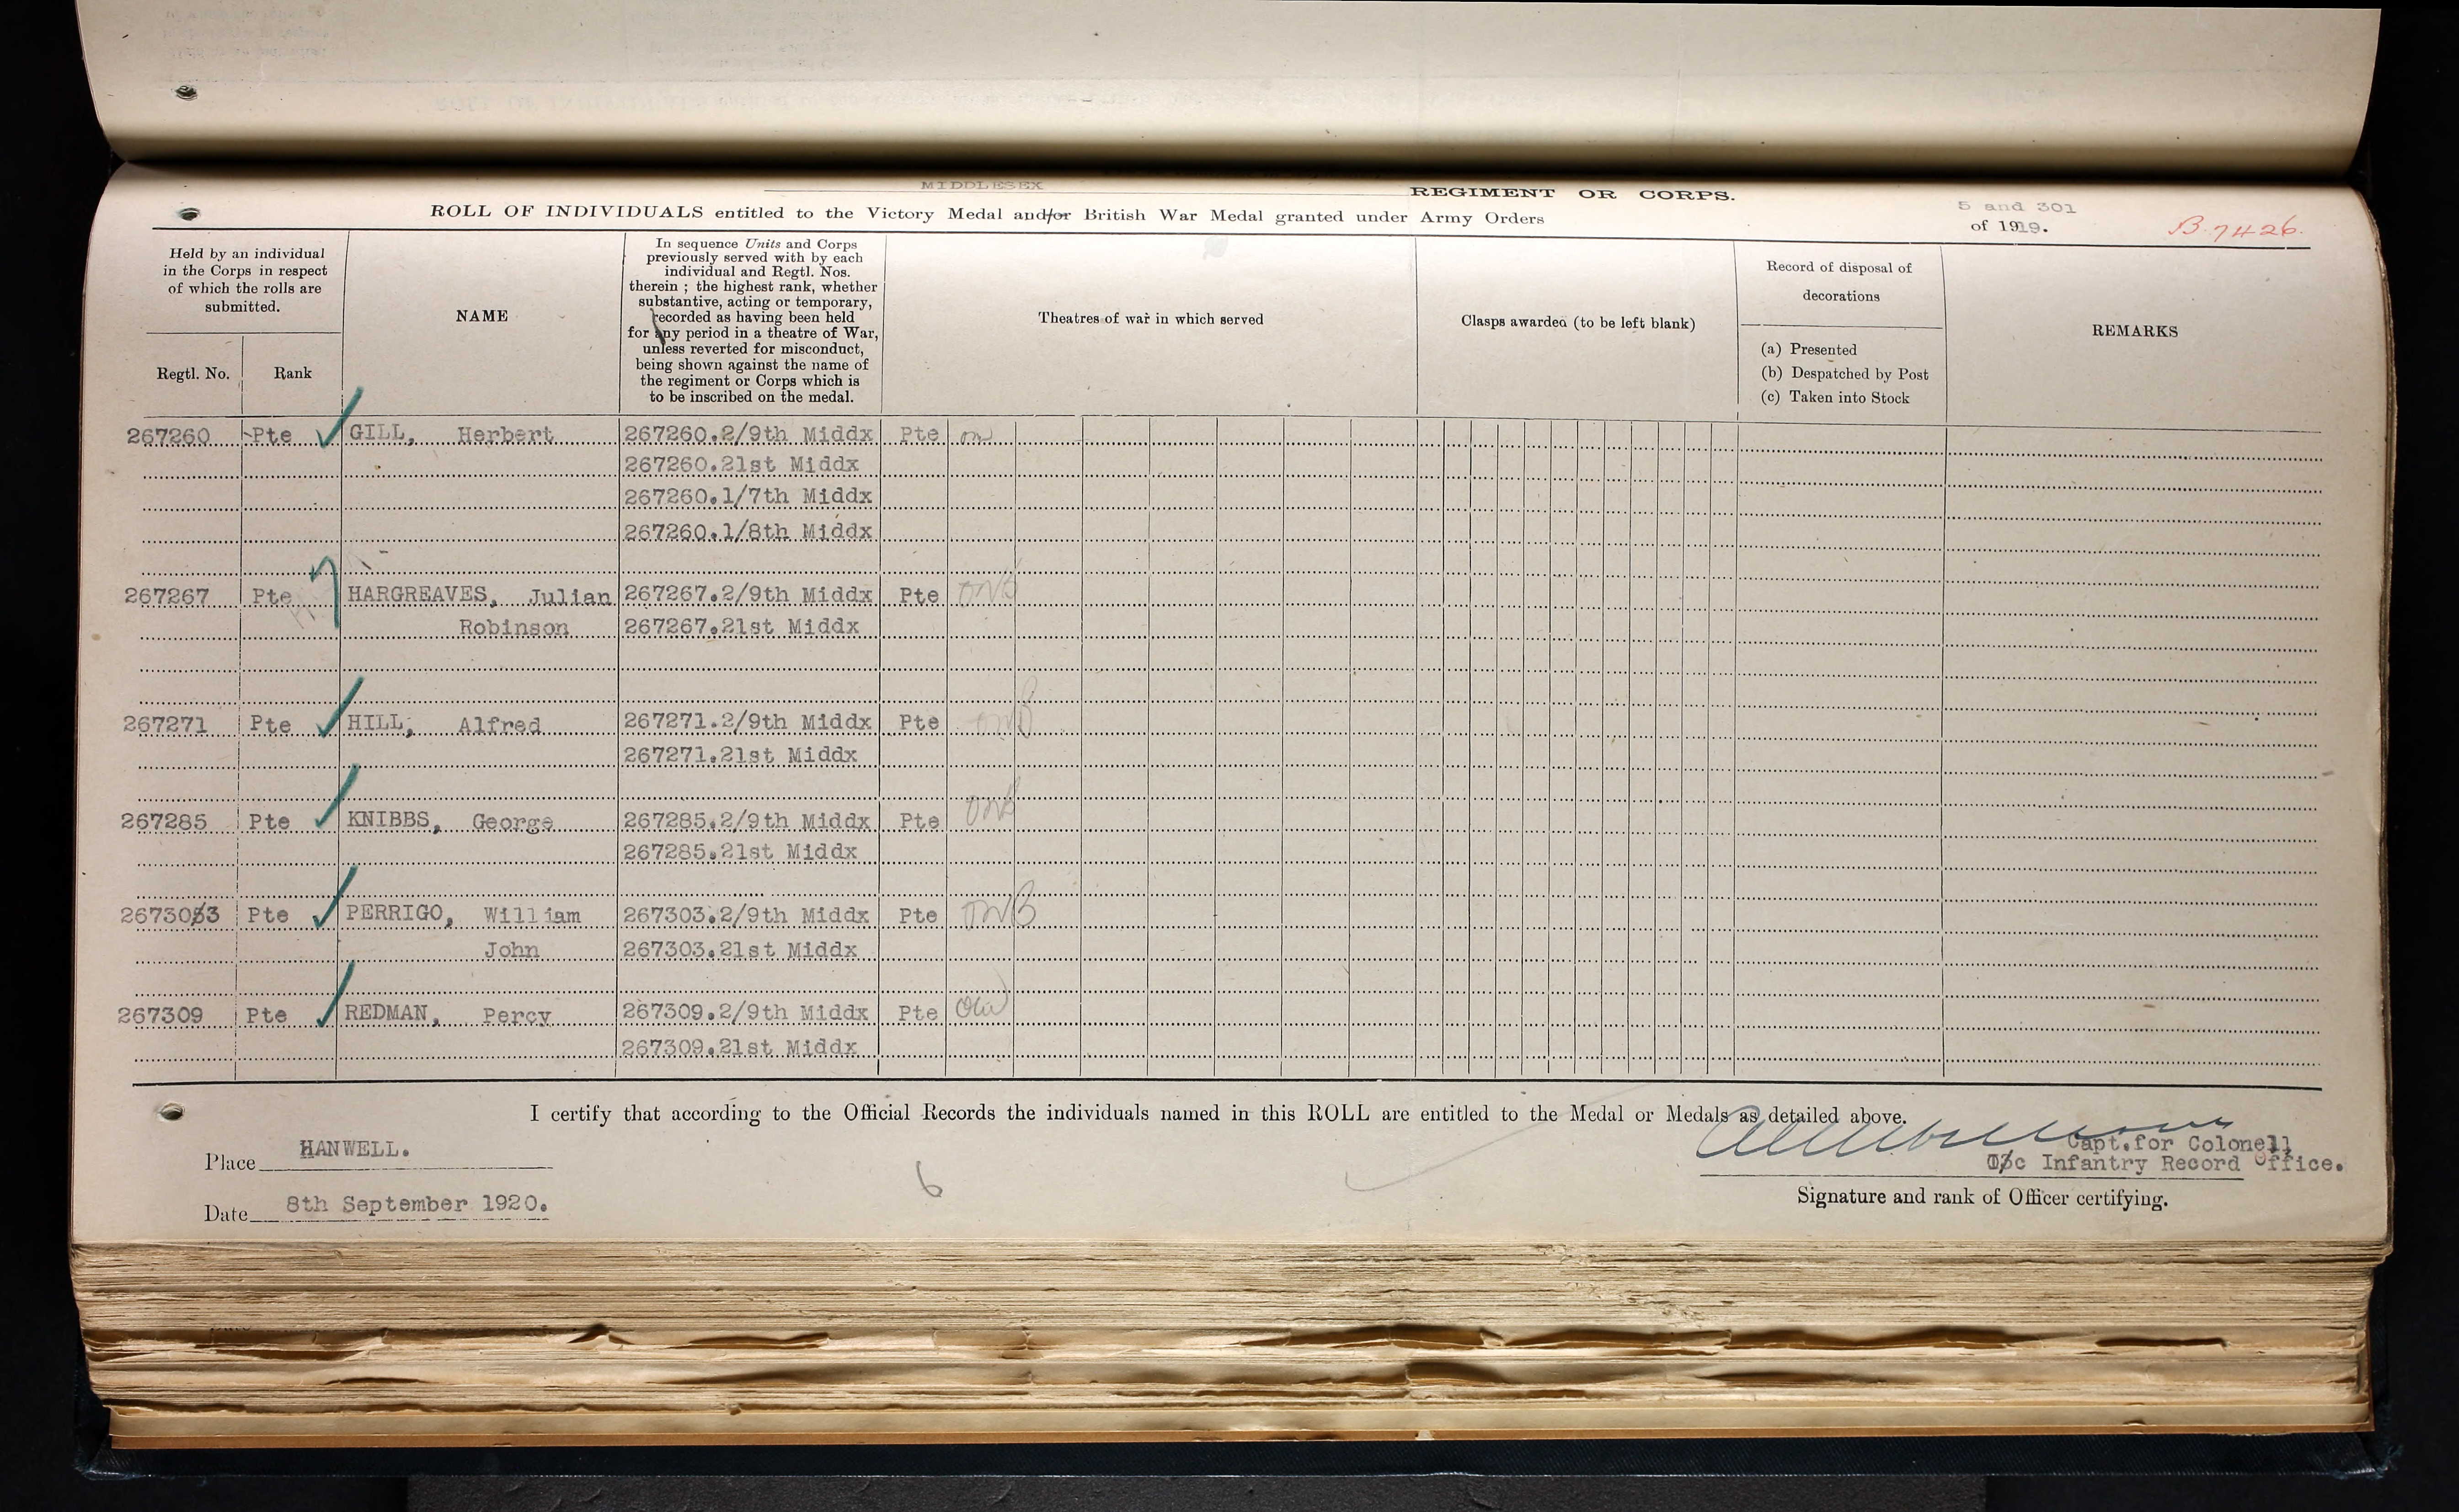 MIDDLESEX REGIMENT OR CORPS.
ROLL OF INDIVIDUALS entitled to the Victory Medal and/or British War Medal granted under Army Orders
5 and 301
of 1919.
B. 7426.
Held by an individual
in the Corps in respect
of which the rolls are
submitted.
Regtl. No. Rank
NAME
In sequence Units and Corps
previously served with by each
individual and Regtl. Nos.
therein ; the highest rank, whether
substantive, acting or temporary,
recorded as having been held
for any period in a theatre of War,
unless reverted for misconduct,
being shown against the name of
the regiment or Corps which is
to be inscribed on the medal.
Theatres of war in which served
Clasps awarded (to be left blank)
Record of disposal of
decorations
(a) Presented
(b) Despatched by Post
(c) Taken into Stock
REMARKS
267260 Pte GILL, Herbert 267260.2/9th Middx Pte
267260.21st Middx
267260.1/7th Middx
267260.1/8th Middx
267267 Pte HARGREAVES, Julian 267267.2/9th Middx Pte
Robinson 267267.21st Middx
267271 Pte HILL, Alfred 267271.2/9th Middx Pte
267271.21st Middx
267285 Pte KNIBBS, George 267285.2/9th Middx Pte
267285.21st Middx
267303 Pte PERRIGO, William 267303.2/9th Middx Pte
John 267303.21st Middx
267309 Pte REDMAN, Percy 267309.2/9th Middx Pte
267309.21st Middx
I certify that according to the Official Records the individuals named in this ROLL are entitled to the Medal or Medals as detailed above.
Place HANWELL.
Capt.for Colonel
I/c Infantry Record Office.
6
Date 8th September 1920.
Signature and rank of Officer certifying.